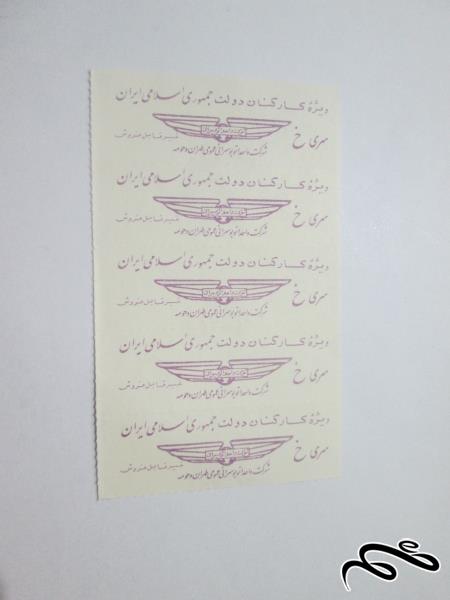 ویژهٔ کارکنان دولت جمهوری اسلامی ایران
سری خ
غیرقابل فروش
شرکت واحد اتوبوسرانی عمومی طهران و حومه
ویژهٔ کارکنان دولت جمهوری اسلامی ایران
سری خ
غیرقابل فروش
شرکت واحد اتوبوسرانی عمومی طهران و حومه
ویژهٔ کارکنان دولت جمهوری اسلامی ایران
سری خ
غیرقابل فروش
شرکت واحد اتوبوسرانی عمومی طهران و حومه
ویژهٔ کارکنان دولت جمهوری اسلامی ایران
سری خ
غیرقابل فروش
شرکت واحد اتوبوسرانی عمومی طهران و حومه
ویژهٔ کارکنان دولت جمهوری اسلامی ایران
سری خ
غیرقابل فروش
شرکت واحد اتوبوسرانی عمومی طهران و حومه